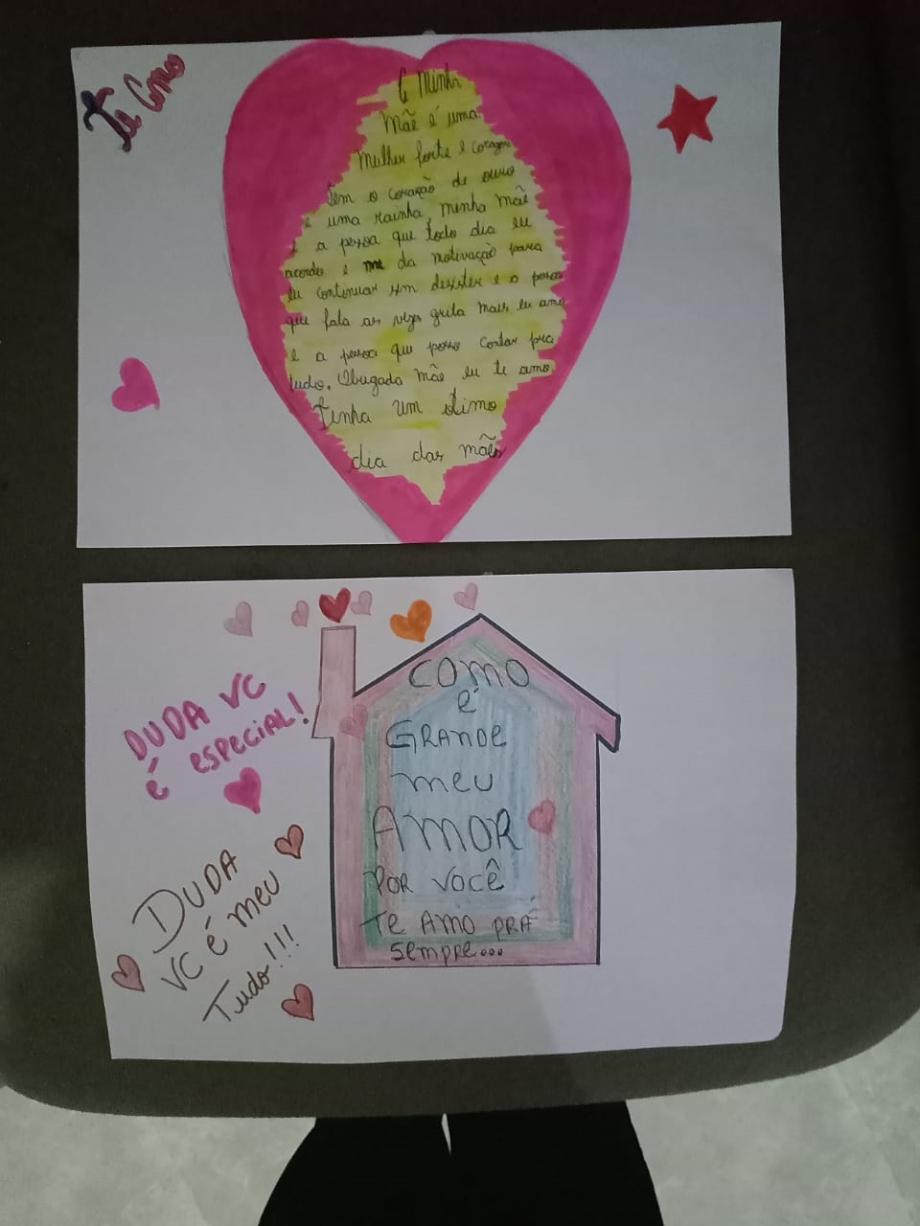 Te Como
A Minha
Mãe é uma
Mulher forte e coragem
tem o coração de ouro
é uma rainha minha mãe
é a pessoa que todo dia eu
acordo e me da motivação para
eu continuar sem desister e a pessoa
que fala as vezes grita mais eu amo
e a pessoa que posso contar pra
tudo. Obrigada mãe eu te amo
tenha um otimo
dia das mães
COMO
é
GRANDE
meu
AMOR
POR VOCÊ
Te AMO PRÁ
Sempre...
DUDA VC
é especial!
DUDA
VC é meu
Tudo!!!